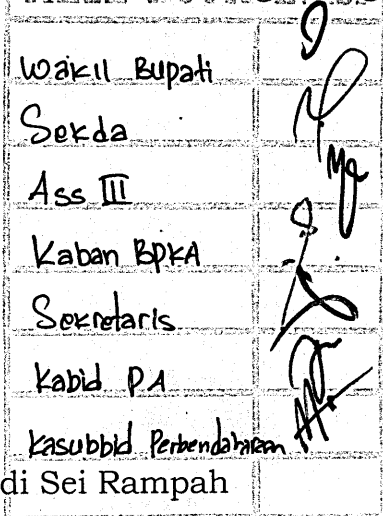 Wakil Bupati
Sekda
Ass III
Kaban BPKA
Sekretaris
Kabid PA
Kasubbid Perbendaharaan
di Sei Rampah